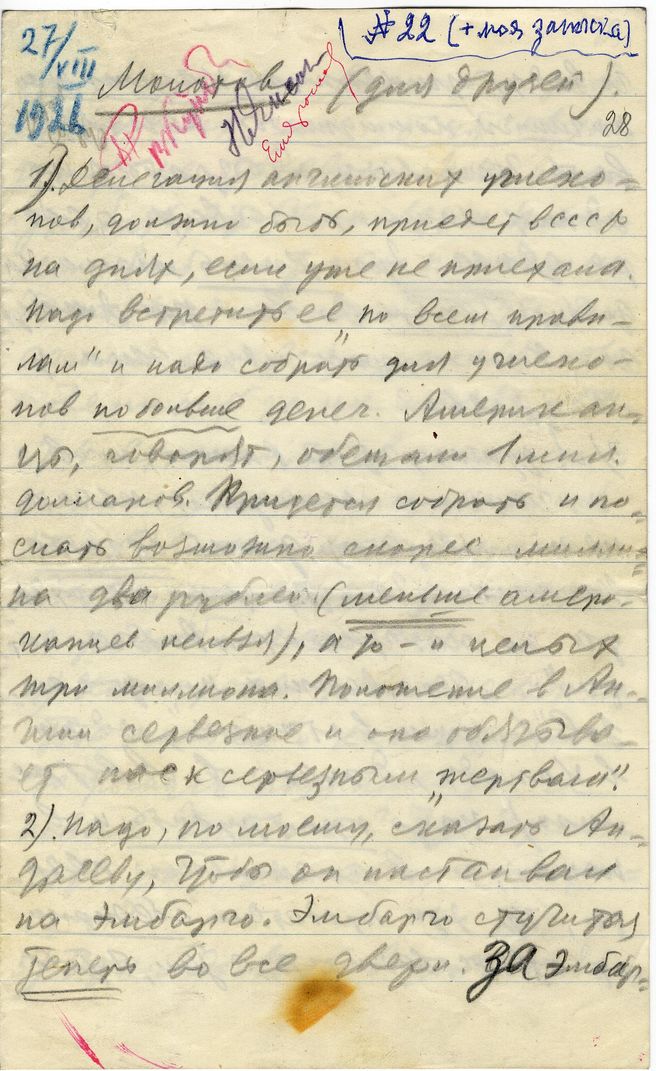 27/VIII
1926
№ 22 (+ моя записка)
Молотов (для друзей).
28
1). Делегация английских углеко-
пов, должно быть, приедет в СССР
на днях, если уже не приехала.
Надо встретить ее „по всем прави-
лам" и надо собрать для углеко-
пов побольше денег. Американ-
цы, говорят, обещали 1 милл.
долларов. Придется собрать и по-
слать возможно скорее милли-
на два рублей (меньше амери-
канцев нельзя), а то – и целых
три миллиона. Положение в Ан-
глии серьезное и оно обязыва-
ет нас к серьезным „жертвам".
2). Надо, по моему, сказать Ан-
дрееву, чтобы он настаивал
на Эмбарго. Эмбарго стучится
теперь во все двери. ЗА Эмбар-